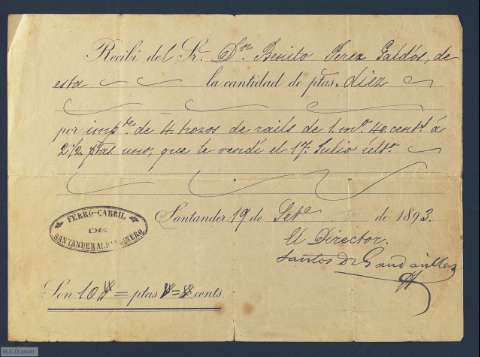 Recibí del Sr. Dn. Benito Perez Galdós, de
esta la cantidad de ptas. diez
por impte. de 4 trozos de rails de 1 m. 40 cent. á
2 1/2 ptas uno, que le vendí el 17 Julio últo.
Santander 19 de Sete. de 1893.
FERRO-CARRIL
DE
SANTANDER AL SARDINERO
El Director.
Santos de Gandarillas
Son 10 ptas conts